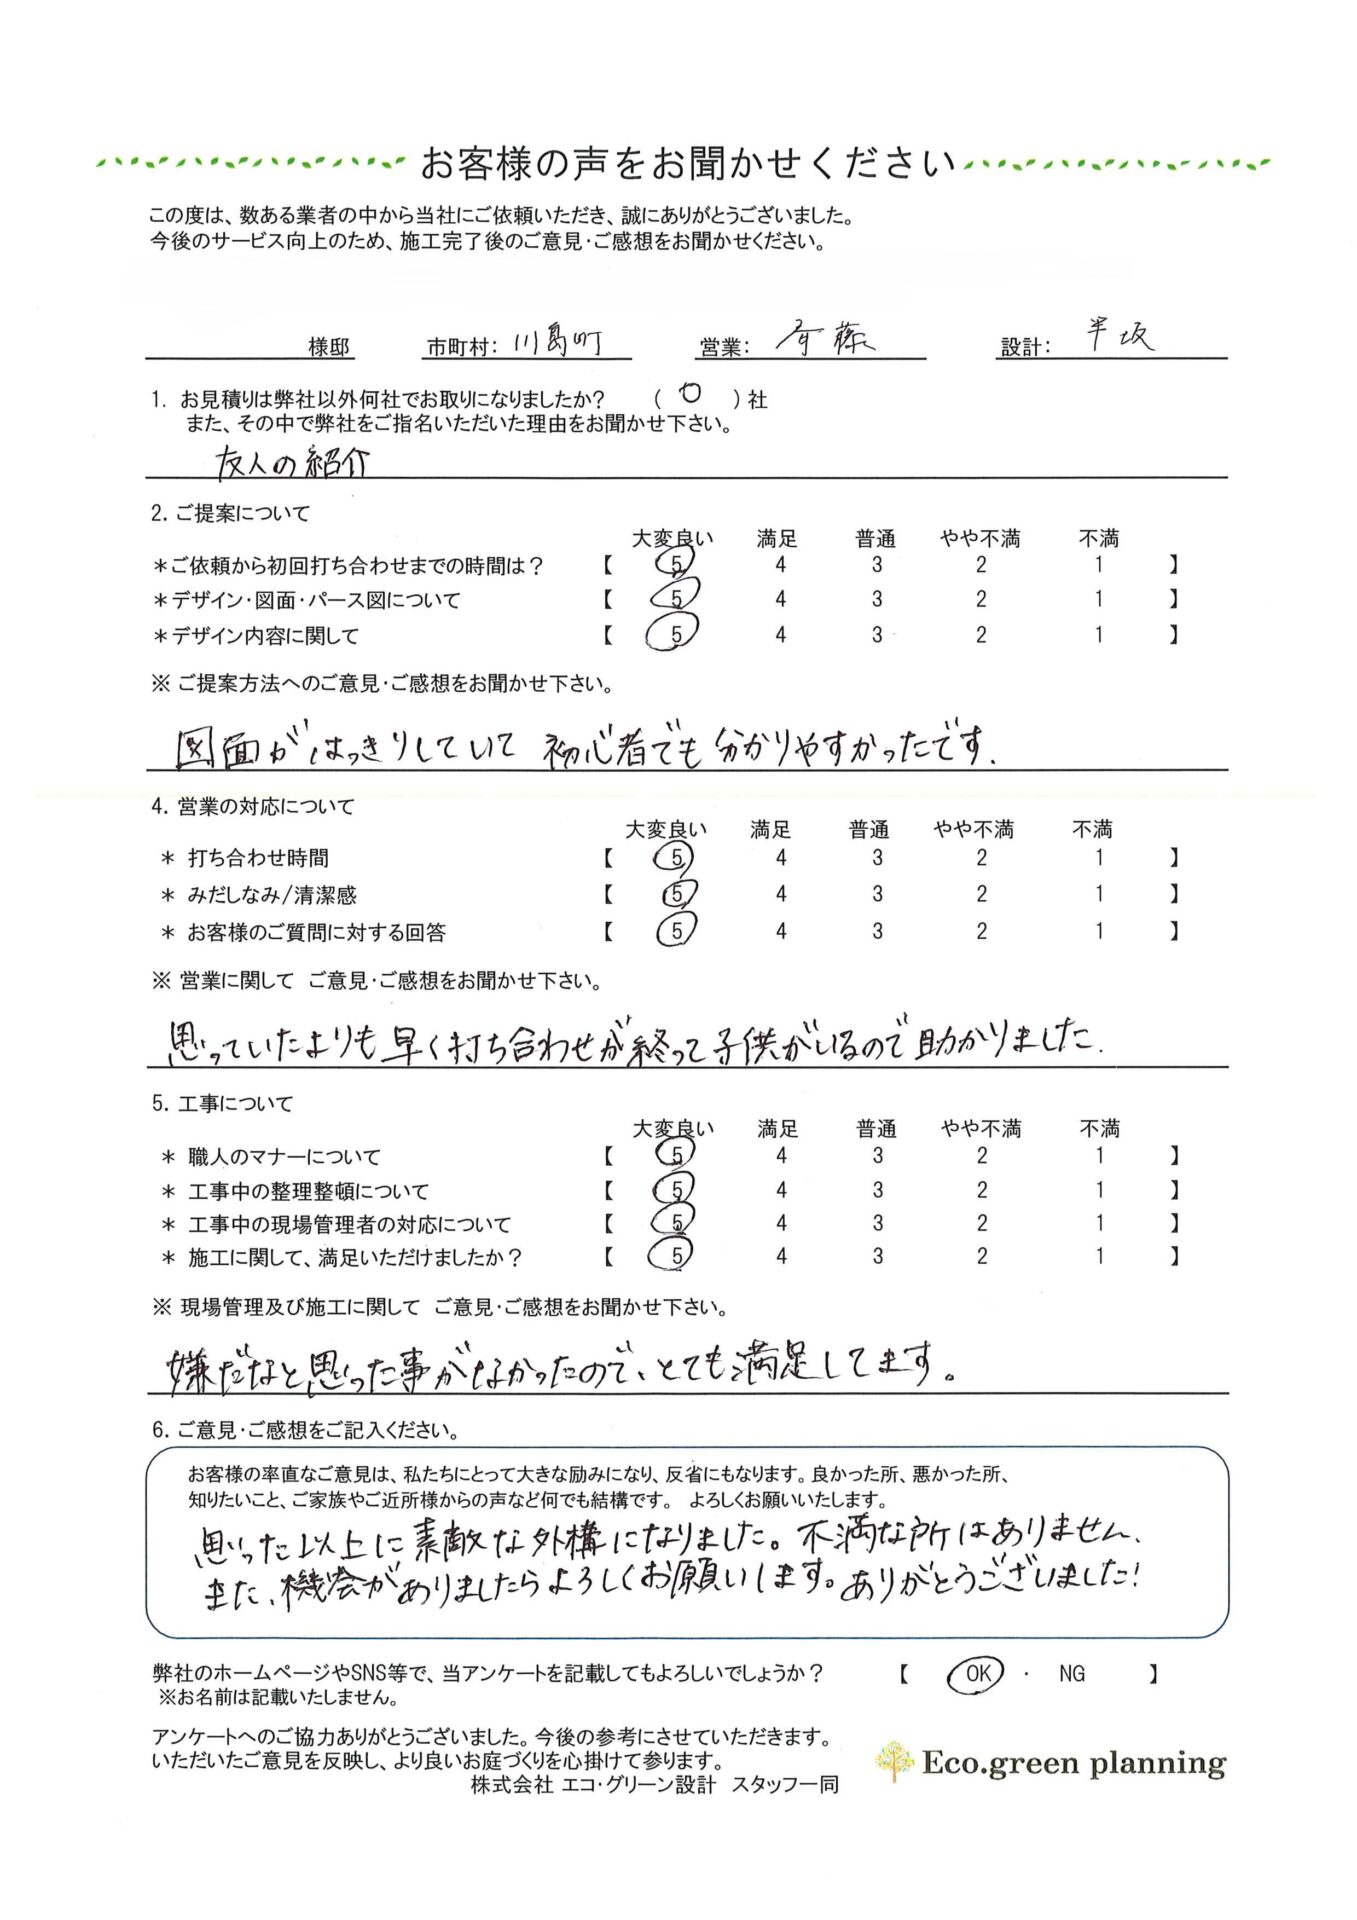 お客様の声をお聞かせください
この度は、数ある業者の中から当社にご依頼いただき、誠にありがとうございました。
今後のサービス向上のため、施工完了後のご意見・ご感想をお聞かせください。
様邸 市町村: 川島町 営業: 斉藤 設計: 半坂
1. お見積りは弊社以外何社でお取りになりましたか? ( 0 )社
また、その中で弊社をご指名いただいた理由をお聞かせ下さい。
友人の紹介
2. ご提案について
大変良い 満足 普通 やや不満 不満
＊ご依頼から初回打ち合わせまでの時間は？ 【 5 4 3 2 1 】
＊デザイン・図面・パース図について 【 5 4 3 2 1 】
＊デザイン内容に関して 【 5 4 3 2 1 】
※ ご提案方法へのご意見・ご感想をお聞かせ下さい。
図面がはっきりしていて 初心者でも分かりやすかったです.
4. 営業の対応について
大変良い 満足 普通 やや不満 不満
＊ 打ち合わせ時間 【 5 4 3 2 1 】
＊ みだしなみ/清潔感 【 5 4 3 2 1 】
＊ お客様のご質問に対する回答 【 5 4 3 2 1 】
※ 営業に関して ご意見・ご感想をお聞かせ下さい。
思っていたよりも早く打ち合わせが終って子供がいるので助かりました.
5. 工事について
大変良い 満足 普通 やや不満 不満
＊ 職人のマナーについて 【 5 4 3 2 1 】
＊ 工事中の整理整頓について 【 5 4 3 2 1 】
＊ 工事中の現場管理者の対応について 【 5 4 3 2 1 】
＊ 施工に関して、満足いただけましたか？ 【 5 4 3 2 1 】
※ 現場管理及び施工に関して ご意見・ご感想をお聞かせ下さい。
嫌だなと思った事がなかったので、とても満足してます。
6. ご意見・ご感想をご記入ください。
お客様の率直なご意見は、私たちにとって大きな励みになり、反省にもなります。良かった所、悪かった所、
知りたいこと、ご家族やご近所様からの声など何でも結構です。 よろしくお願いいたします。
思った以上に素敵な外構になりました。不満な所はありません、
また、機会がありましたらよろしくお願いします。ありがとうございました!
弊社のホームページやSNS等で、当アンケートを記載してもよろしいでしょうか？ 【 OK ・ NG 】
※お名前は記載いたしません。
アンケートへのご協力ありがとうございました。今後の参考にさせていただきます。
いただいたご意見を反映し、より良いお庭づくりを心掛けて参ります。
株式会社 エコ・グリーン設計 スタッフ一同
Eco.green planning